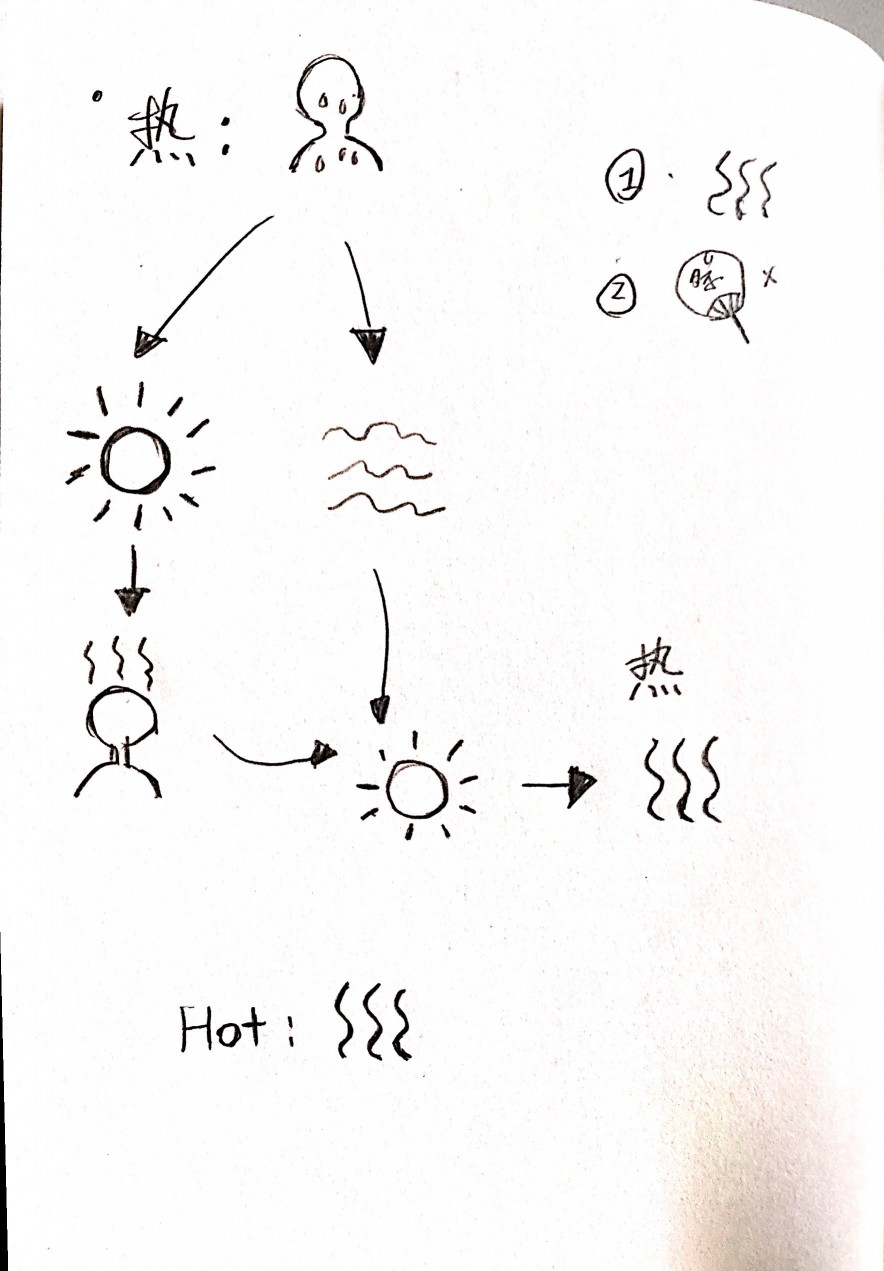 热:
①
②
热
Hot: